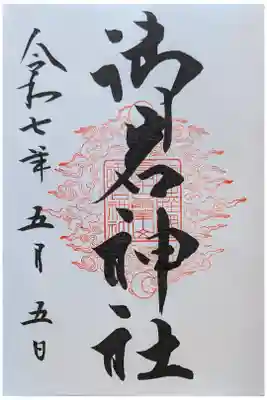 御岩神社
令和七年
五月
五日